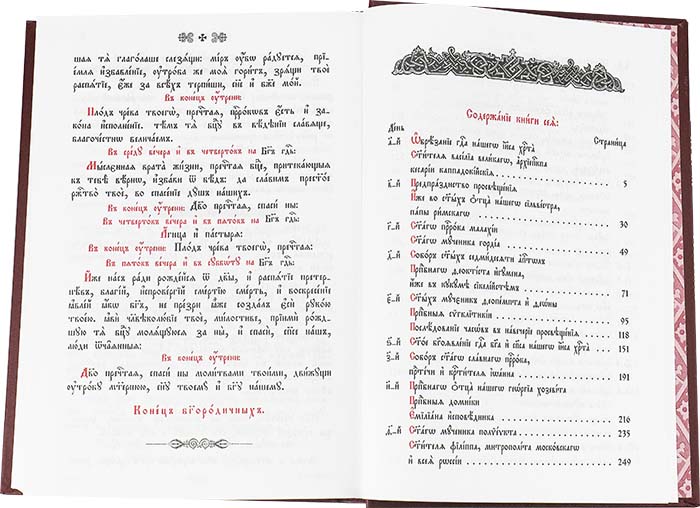 шая тѧ̀ глаголаше слезѧщи: мі́ръ ᲂу҆́бѡ ра́дуетсѧ, прїе́-
млѧ и҆збавле́нїе, ᲂу҆тро́ба же моѧ̀ гори́тъ, зрѧ́щи твоѐ
распѧ́тїе, є҆́же за всѣ́хъ терпи́ши, сн҃е и҆ бж҃е мо́й.
Въ коне́цъ ᲂу҆́трени:
Пло́дъ чре́ва твоегѡ̀, пречⷭ҇таѧ, прⷪ҇ро́кѡвъ є҆́сть и҆ за-
ко́на и҆сполне́нїе. тѣ́мъ тѧ̀ бцⷣу въ вѣ́дѣнїи сла́вѧще,
благоче́стнѡ велича́емъ.
Въ сре́ду ве́чера и҆ въ четверто́къ на Бг҃ъ гдⷭ҇ь:
Мы́сленнаѧ врата̀ жи́зни, пречⷭ҇таѧ бцⷣе, притека́ющыѧ
къ тебѣ̀ вѣ́рнѡ, и҆зба́ви ѿ бѣ́дъ: да сла́вимъ прест҃о́е
ржⷭ҇тво̀ твоѐ, во спасе́нїе дꙋ́шъ на́шихъ.
Въ коне́цъ ᲂу҆́трени: Дв҃о пречⷭ҇таѧ, спаси́ ны:
Въ четверто́къ ве́чера и҆ въ пѧто́къ на Бг҃ъ гдⷭ҇ь:
А҆́гнца и҆ па́стырѧ:
Въ коне́цъ ᲂу҆́трени: Пло́дъ чре́ва твоегѡ̀, пречⷭ҇таѧ:
Въ пѧто́къ ве́чера и҆ въ сꙋббѡ́тꙋ на Бг҃ъ гдⷭ҇ь:
И҆́же на́съ ра́ди рожде́йсѧ ѿ дв҃ы, и҆ распѧ́тїе претер-
пѣ́въ, благі́й, и҆спрове́ргїй сме́ртїю сме́рть, и҆ воскресе́нїе
ꙗ҆вле́й ꙗ҆́кѡ бг҃ъ, не пре́зри ꙗ҆̀же созда́лъ є҆сѝ рꙋко́ю
твое́ю. ꙗ҆вѝ чл҃вѣколю́бїе твоѐ, млⷭ҇тиве, прїимѝ ро́жд-
шꙋю тѧ̀ бцⷣꙋ молѧ́щꙋюсѧ за ны̀, и҆ спасѝ, сп҃се на́шъ,
лю́ди ѿча̑ѧнныѧ.
Въ коне́цъ ᲂу҆́трени:
Дв҃о пречⷭ҇таѧ, спаси́ ны моли́твами твои́ми, дви́жꙋщи
ᲂу҆тро́бꙋ мт҃рнюю, сн҃ꙋ твоемꙋ̀ и҆ бг҃ꙋ на́шемꙋ.
Коне́цъ бг҃оро́дичныхъ.
Содержа́нїе кни́ги сеѧ̀:
Де́нь Страни́ца
а҃-й Ѡ҆брѣ́занїе гдⷭ҇а на́шегѡ і҆и҃са хрⷭ҇та̀
Ст҃и́телѧ васі́лїа вели́кагѡ, а҆рхїепⷭ҇кпа
кесарі́и каппадокі́йскїѧ 5
в҃-й Предпра́зднство просвѣще́нїѧ
И҆́же во ст҃ы́хъ ѻ҆тца̀ на́шегѡ сїльве́стра,
па́пы ри́мскагѡ 30
г҃-й Ст҃а́гѡ прⷪ҇ро́ка мала́хїи
Ст҃а́гѡ мꙋ́ченика горді́а 49
д҃-й Собо́ръ ст҃ы́хъ седми́десѧти а҆пⷭ҇лѡвъ
Прпⷣбнагѡ ѳеокті́ста и҆гꙋ́мена,
и҆́же въ кꙋкꙋ́мѣ сїкелі́йстѣмъ 71
є҃-й Ст҃ы́хъ мꙋ́ченикъ ѳеопе́мпта и҆ ѳеѡ́ны
Прпⷣбныѧ сѷгклитїкі́и 95
Послѣ́дованїе часѡ́въ въ наве́черїи просвѣще́нїѧ 118
ѕ҃-й Ст҃о́е бг҃оѧвле́нїе гдⷭ҇а бг҃а и҆ сп҃са на́шегѡ і҆и҃са хрⷭ҇та̀ 151
з҃-й Собо́ръ ст҃а́гѡ сла́внагѡ прⷪ҇ро́ка,
прⷣте́чи и҆ крⷭ҇ти́телѧ і҆ѡа́нна 191
и҃-й Прпⷣбнагѡ ѻ҆тца̀ на́шегѡ геѡ́ргїа хозеві́та
Прпⷣбныѧ домні́ки
Є҆мїлїа́на и҆сповѣ́дника 216
ѳ҃-й Ст҃а́гѡ мꙋ́ченика полѷе́ѵкта 235
Ст҃и́телѧ фїлі́ппа, митрополі́та моско́вскагѡ
и҆ всеѧ̀ рѡссі́и 249